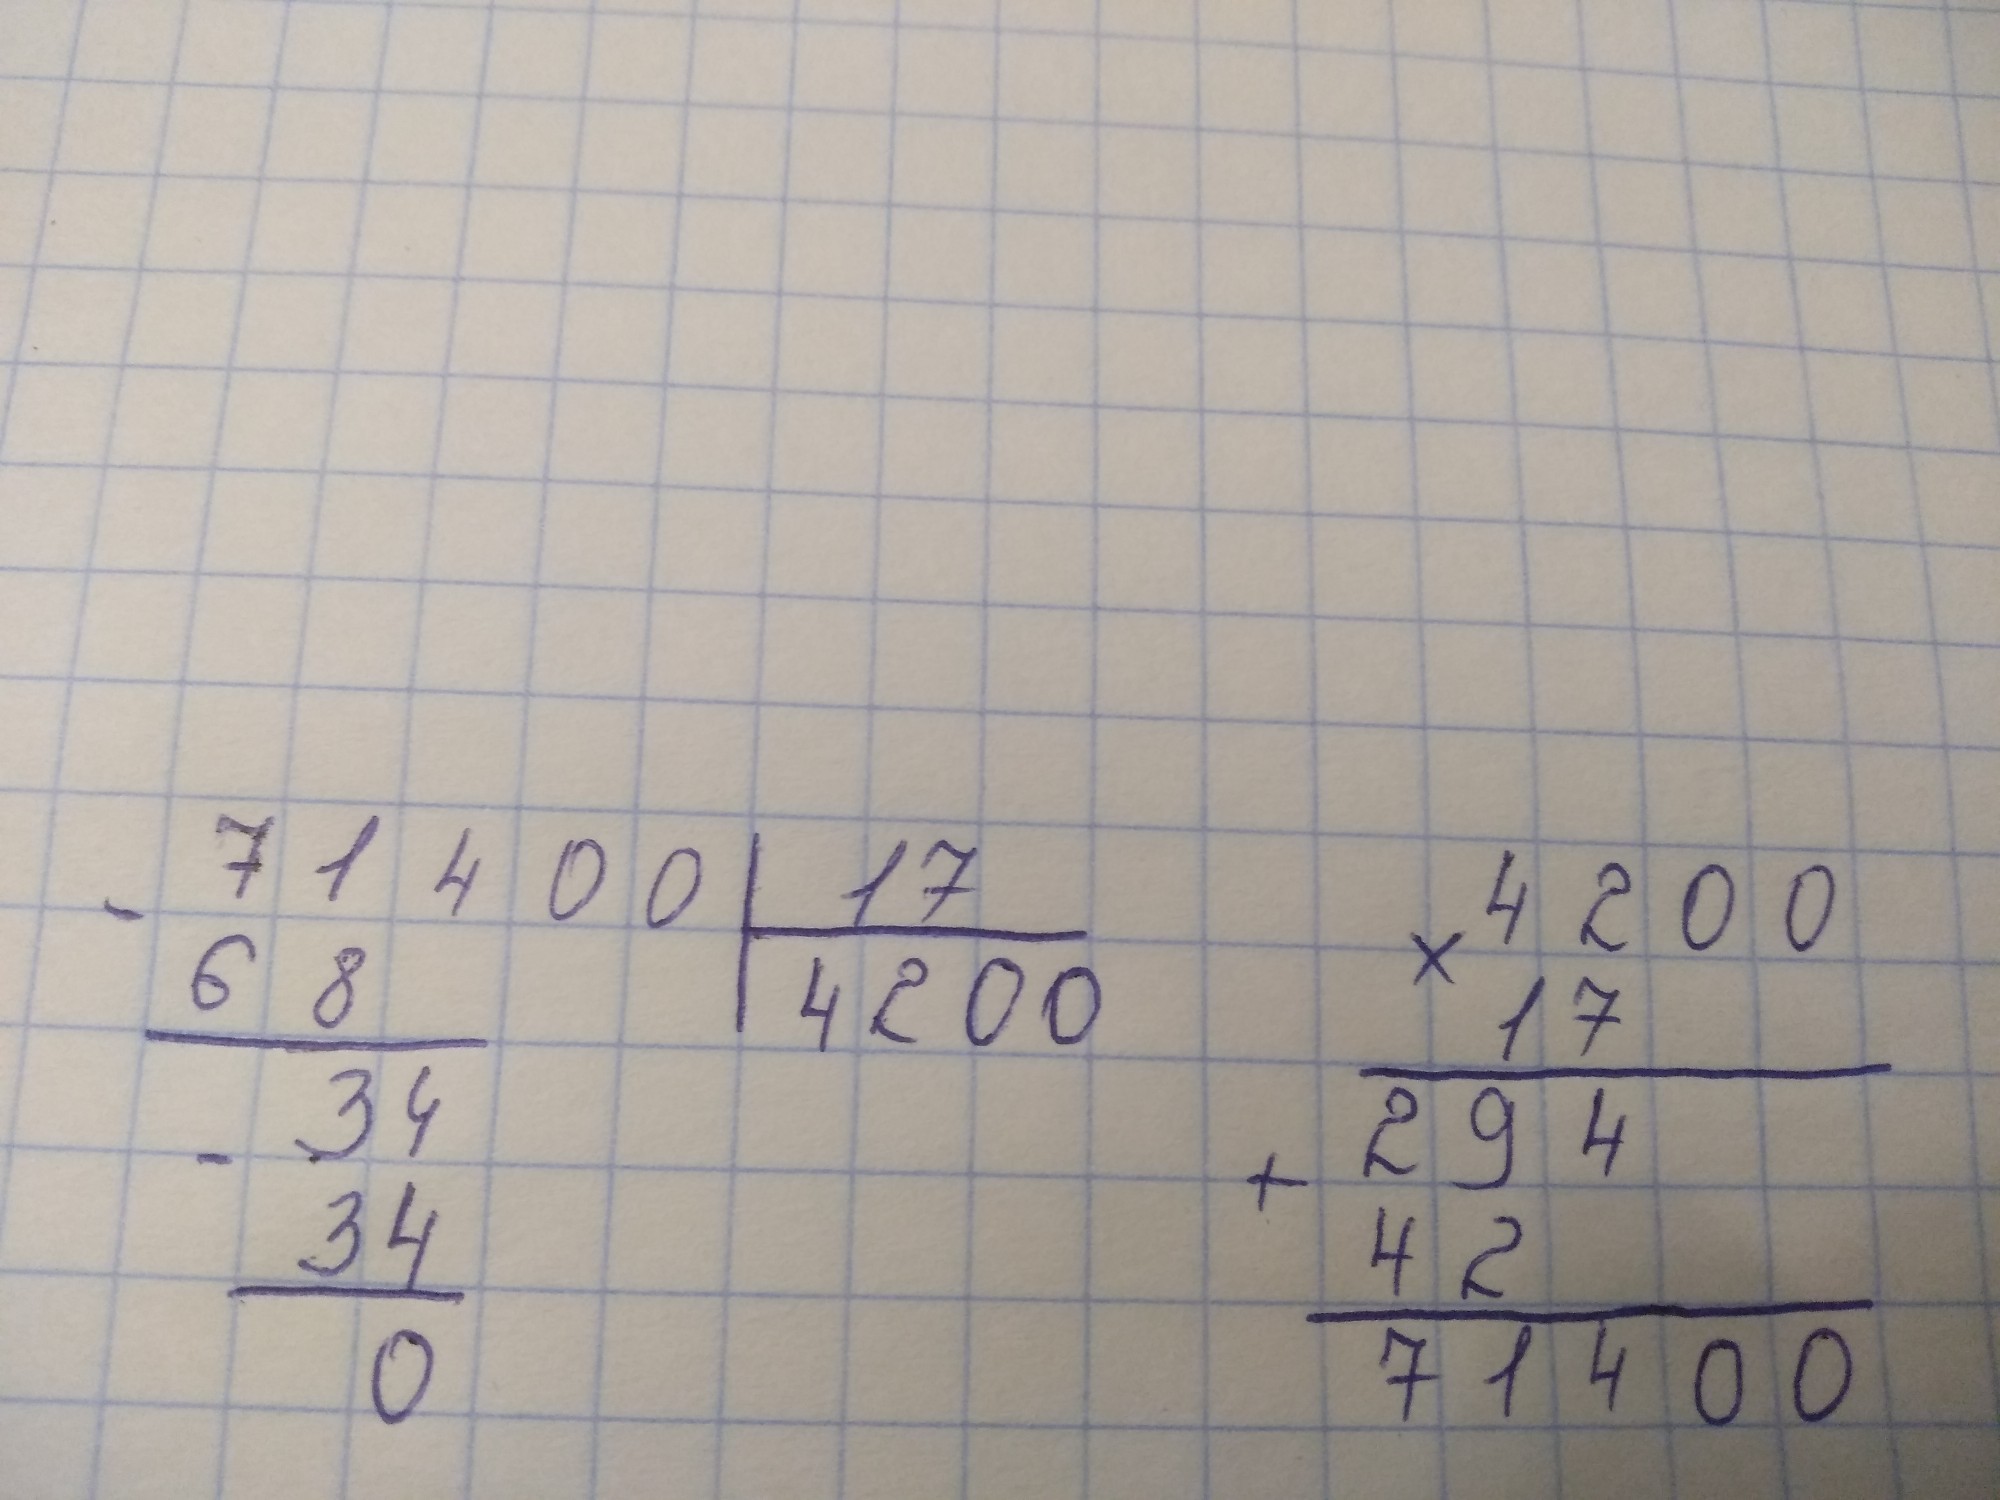 - 71400 | 17
68 | 4200
- 34
34
0
× 4200
17
+ 294
42
71400